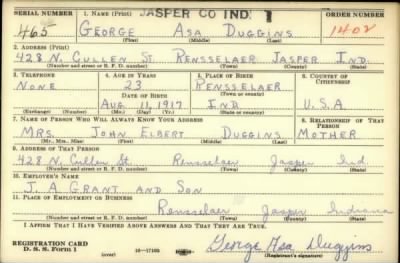 SERIAL NUMBER 1. NAME (Print) JASPER CO IND. 1 ORDER NUMBER
465 GEORGE ASA DUGGINS 1408
(First) (Middle) (Last)
2. ADDRESS (Print)
428 N. CULLEN ST. RENSSELAER JASPER IND.
(Number and street or R. F. D. number) (Town) (County) (State)
3. TELEPHONE 4. AGE IN YEARS 5. PLACE OF BIRTH 6. COUNTRY OF CITIZENSHIP
NONE 23 RENSSELAER
DATE OF BIRTH (Town or county)
AUG 11, 1917 IND U.S.A
(Exchange) (Number) (Mo.) (Day) (Yr.) (State or country)
7. NAME OF PERSON WHO WILL ALWAYS KNOW YOUR ADDRESS 8. RELATIONSHIP OF THAT PERSON
MRS. JOHN ELBERT DUGGINS MOTHER
(Mr., Mrs., Miss) (First) (Middle) (Last)
9. ADDRESS OF THAT PERSON
428 N. Cullen St. Rensselaer Jasper Ind.
(Number and street or R. F. D. number) (Town) (County) (State)
10. EMPLOYER'S NAME
J. A GRANT AND SON
11. PLACE OF EMPLOYMENT OR BUSINESS
Rensselaer Jasper Indiana
(Number and street or R. F. D. number) (Town) (County) (State)
I AFFIRM THAT I HAVE VERIFIED ABOVE ANSWERS AND THAT THEY ARE TRUE.
REGISTRATION CARD
D. S. S. Form 1 (over) 16—17105 George Asa Duggins
(Registrant's signature)